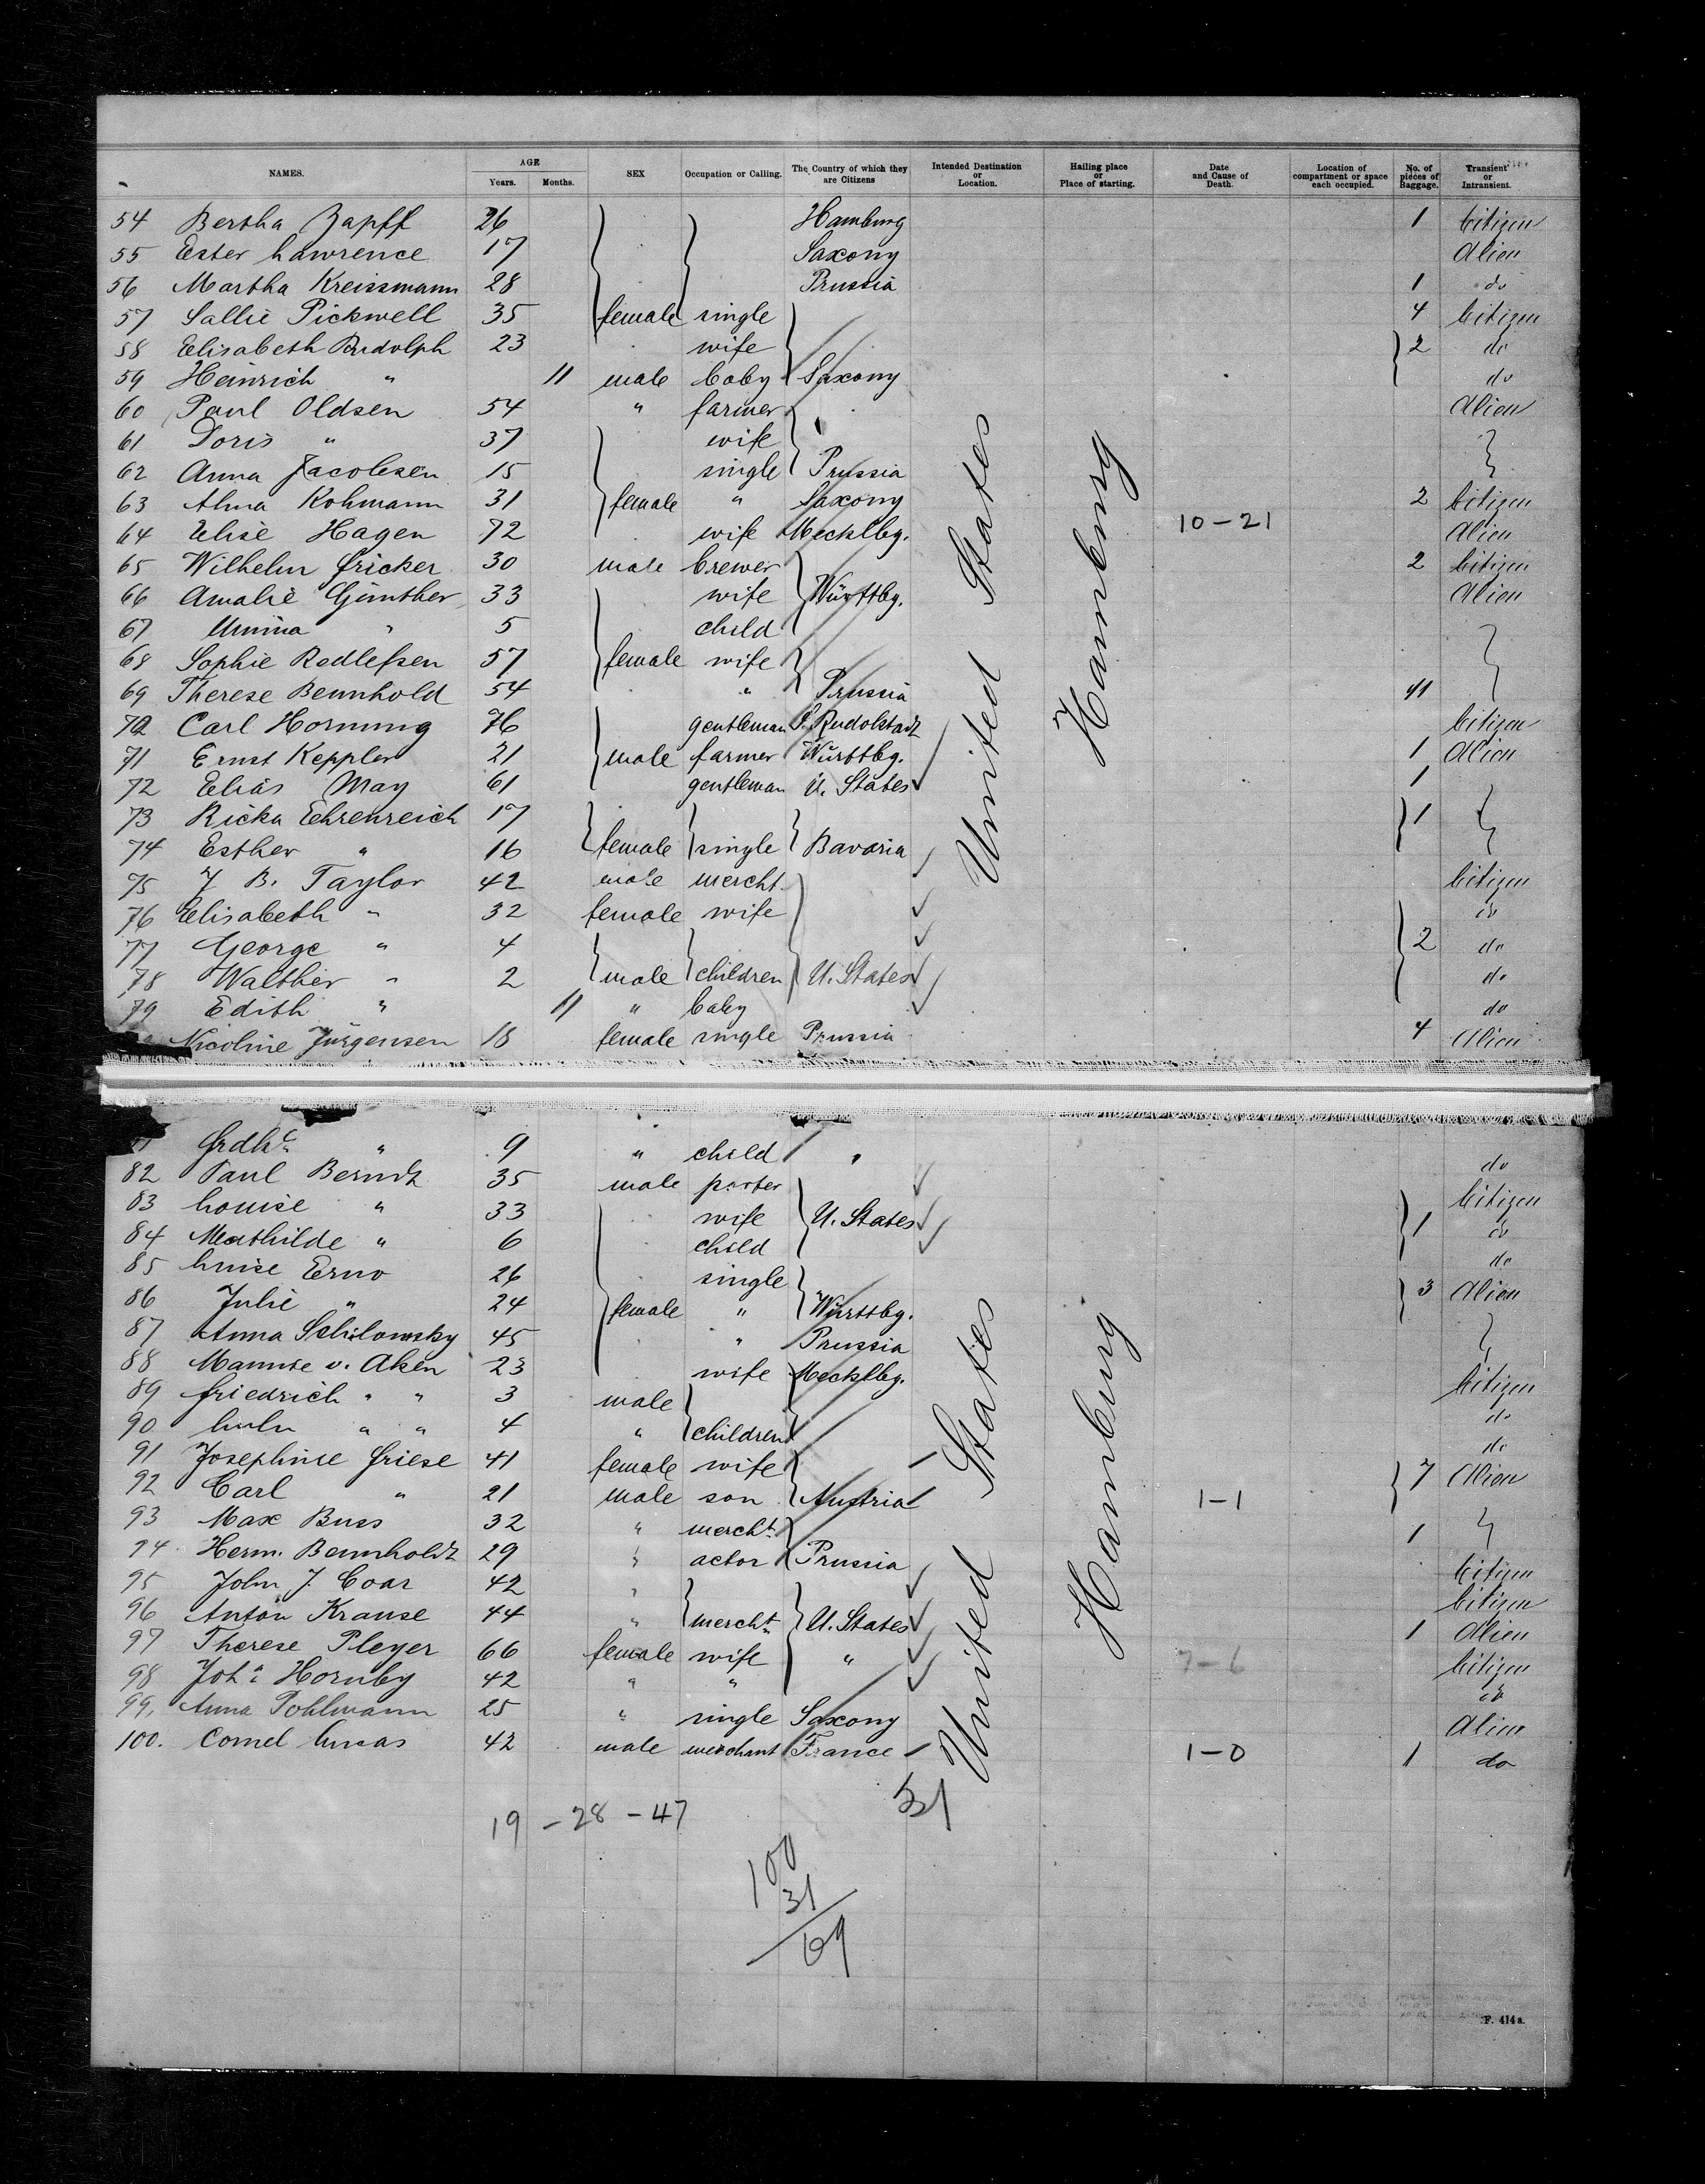 NAMES. AGE Years. Months. SEX Occupation or Calling. The Country of which they are Citizens Intended Destination or Location. Hailing place or Place of starting. Date and Cause of Death. Location of compartment or space each occupied. No. of pieces of Baggage. Transient or Intransient.
54 Bertha Zapff 26 Hamburg 1 Citizen
55 Ester Lawrence 17 Saxony Alien
56 Martha Kreissmann 28 Prussia 1 do
57 Sallie Pickwell 35 female single 4 Citizen
58 Elisabeth Rudolph 23 wife 2 do
59 Heinrich " 11 male baby Saxony do
60 Paul Oldsen 54 " farmer Alien
61 Doris " 37 wife
62 Anna Jacobsen 15 single Prussia
63 Alma Kohmann 31 female " Saxony 2 Citizen
64 Elise Hagen 72 wife Mecklbg. 10-21 Alien
65 Wilhelm Fricker 30 male brewer 2 Citizen
66 Amalie Günther 33 wife Württbg. Alien
67 " 5 child
68 Sophie Redlefsen 57 female wife
69 Therese Bennhold 54 " Prussia
70 Carl Hornung 76 gentleman S. Rudolstadt Citizen
71 Ernst Keppler 21 male farmer Württbg. 1 Alien
72 Elias May 61 gentleman U. States 1
73 Ricka Ehrenreich 17 1
74 Esther " 16 female single Bavaria
75 J B. Taylor 42 male mercht. Citizen
76 Elisabeth " 32 female wife do
77 George " 4 2 do
78 Walther " 2 male children U. States do
79 Edith " 11 " baby do
Nicoline Jürgensen 18 female single Prussia 4 Alien
United States Hamburg
1 Frdke " 9 " child " do
82 Paul Berndt 35 male porter Citizen
83 Louise " 33 wife U. States 1 do
84 Mathilde " 6 child do
85 Luise Erno 26 single 3 Alien
86 Julie " 24 female " Württbg.
87 Anna Schilowsky 45 " Prussia
88 Mannie v. Aken 23 wife Mecklbg. Citizen
89 Friedrich " " 3 male do
90 " " 4 " children do
91 Josephine Friese 41 female wife 7 Alien
92 Carl " 21 male son Austria 1-1
93 Max Buss 32 " mercht. 1
94 Herm. Bennholdt 29 " actor Prussia Citizen
95 John J. Coar 42 " Citizen
96 Anton Krause 44 " mercht. U. States 1 Alien
97 Therese Pleyer 66 female wife " 7-6 Citizen
98 Joha Hornby 42 " " do
99. Anna Pohlmann 25 " single Saxony Alien
100. Cornel Lucas 42 male merchant France 1-0 1 do
United States Hamburg
31
19 - 28 - 47
100
31
69
F. 414 a.